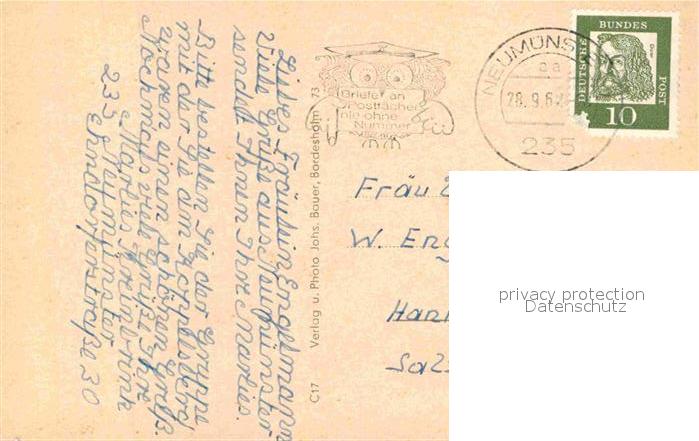 Liebes Fräulein Engelmann
Viele Grüße aus Neumünster
sendet Ihnen Ihre Marlies.
Bitte bestellen Sie der Gruppe
mit der Sie am
waren einen schönen Gruß.
Nochmals viele Grüße Ihre
Marlies
235 Neumünster
Ehndorferstraße 30
C17 Verlag u. Photo Johs. Bauer, Bordesholm 73
Briefe an
Postfächer
nie ohne
Nummer
NEUMÜNS
aa
28.9.6
235
DEUTSCHE
BUNDES
POST
Dürer
10
Fräu
W. Eng
Han
Salz
privacy protection
Datenschutz